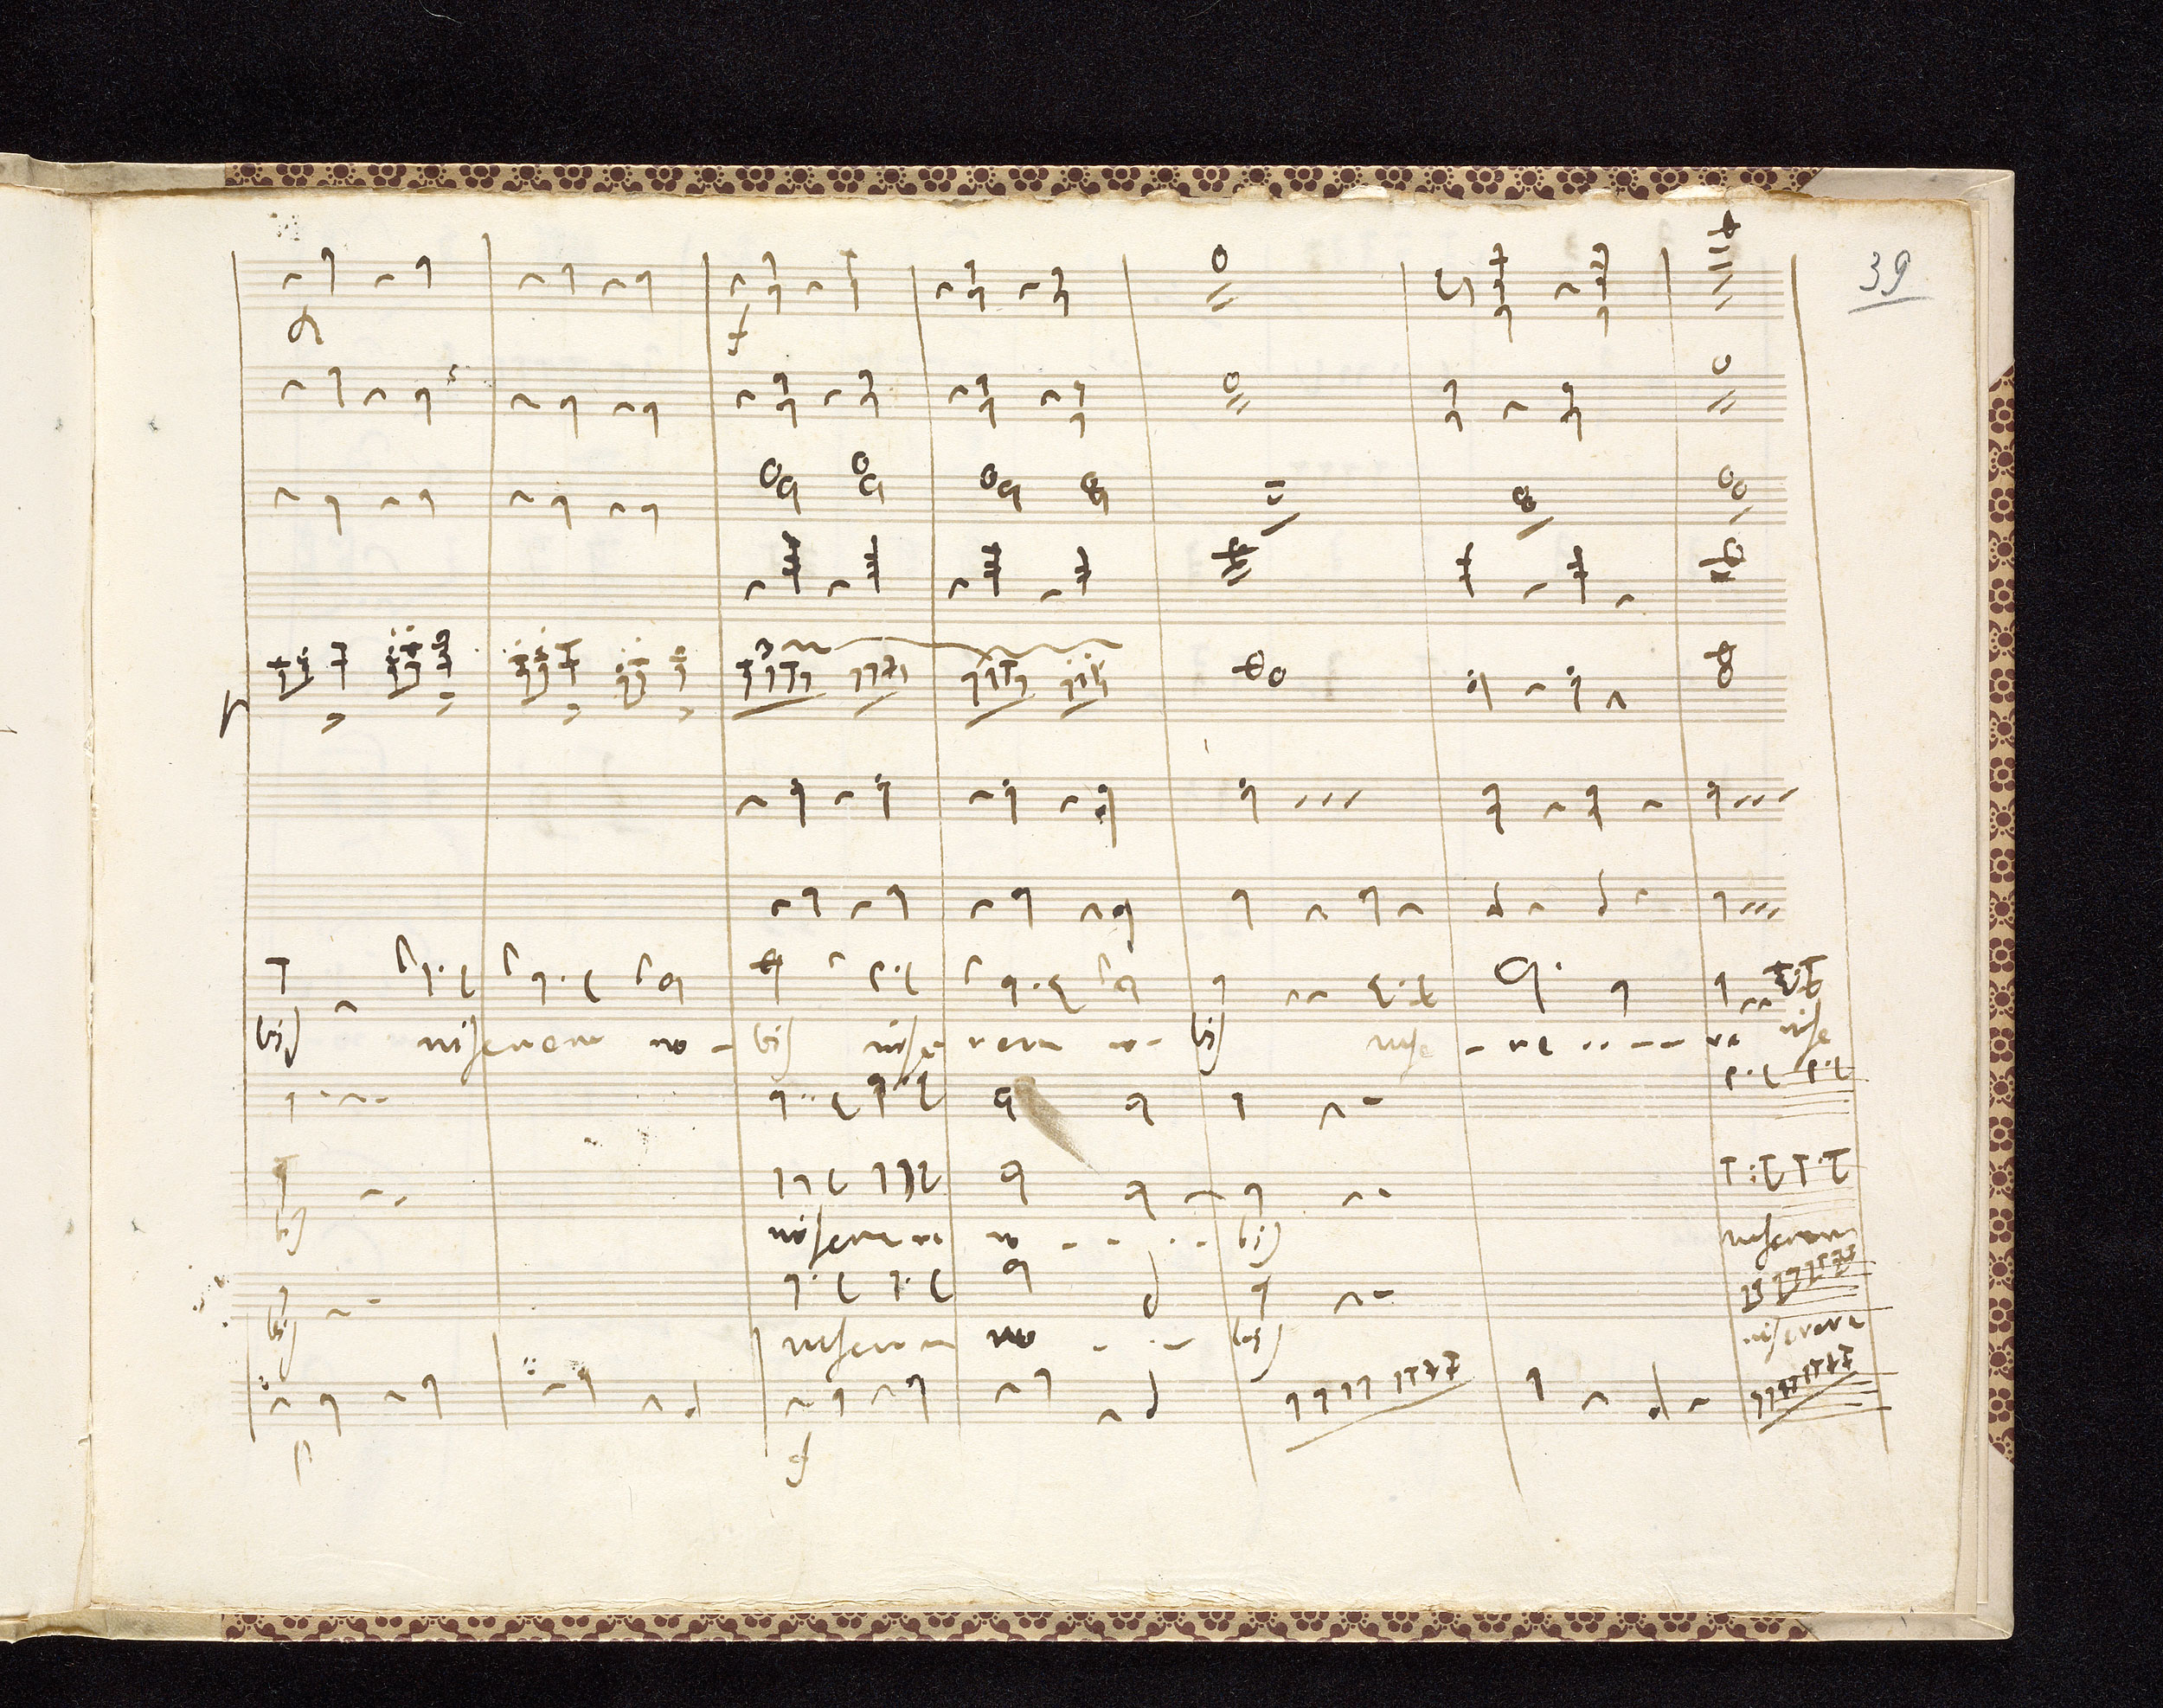 39
p
f
bis miserere no - bis mise - rere no - bis mise - re - - - - re mise
bis miserere no - - - - bis miserere
bis miserere no - - - bis miserere
p f